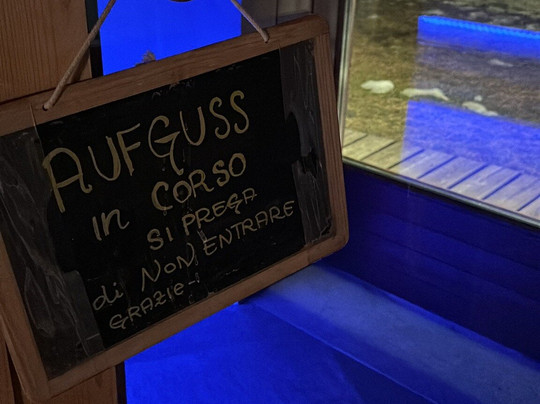 AUFGUSS
in CORSO
SI PREGA
di NON ENTRARE
GRAZIE-!